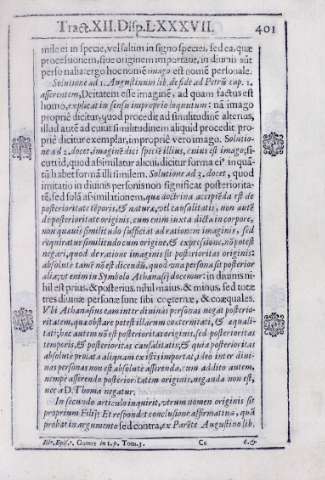 Tract. XII. Disp. LXXXVII. 401
mile ei in specie, vel saltim in signo speciei, sed ea, quæ
processionem, siue originem important, in diuinis aut
perso naha ergo hoc nomē imago est nomē personale.
Solutione ad 1. Augustinum lib. de fide ad Petrū cap. 1.
asserentem, Deitatem esse imaginē, ad quam factus est
homo, explicat in sensu improprio inquatum: nā imago
propriè dicitur, quod procedit ad similitudinē alterius,
illud autē ad cuius similitudinem aliquid procedit pro
priè dicitur exemplar, impropriè vero imago. Solutio-
ne ad 2. docet, imaginē dici speciē illius, cuius est imago, si
cut id, quod assimilatur alicui, dicitur forma ei⁹ in quā-
tū habet formā illi similem. Solutione ad 3. docet, quod
imitatio in diuinis personis non significat posteriorita-
tē, sed solā assimilationem, quæ doctrina accipiēda est de
posterioritate tēporis, & naturæ, vel causalitatis, non autē
de posterioritate originis, cum enim iuxta dicta in corpore,
non quauis similitudo sufficiat ad rationem imaginis, sed
requiratur similitudo cum origine, & expressione, nō potest
negari, quod de ratione imaginis sit posterioritas originis:
absolutè tamē nō est dicendū, quod vna persona sit posterior
alia, vt enim in Symbolo Athanasij docemur: in diuinis ni-
hil est prius, & posterius, nihil maius, & minus, sed totæ
tres diuinæ personæ sunt sibi coæternæ, & coæquales.
Vbi Athanasius eam inter diuinas personas negat posterio-
ritatem, qua obstare potest illarum coæternitati, & æquali-
tati; hæc autem nō est posterioritas originis, sed posterioritas
temporis, & posterioritas causalitatis; & quia posterioritas
absolutè prolata aliquam ex istis importat, ideo inter diui-
nas personas non est absolutè asserenda, cum addito autem,
nempè asserendo posterioritatem originis, neganda non est,
nec à D. Thoma negatur.
In secundo articulo inquirit, vtrum nomen originis sit
proprium Filij? Et respondet conclusione affirmatiua, quā
probat in argumento sed contra, ex Parēte Augustino lib.
Illr. Episc. Gomez in 1. p. Tom. 3. Cc 6. &